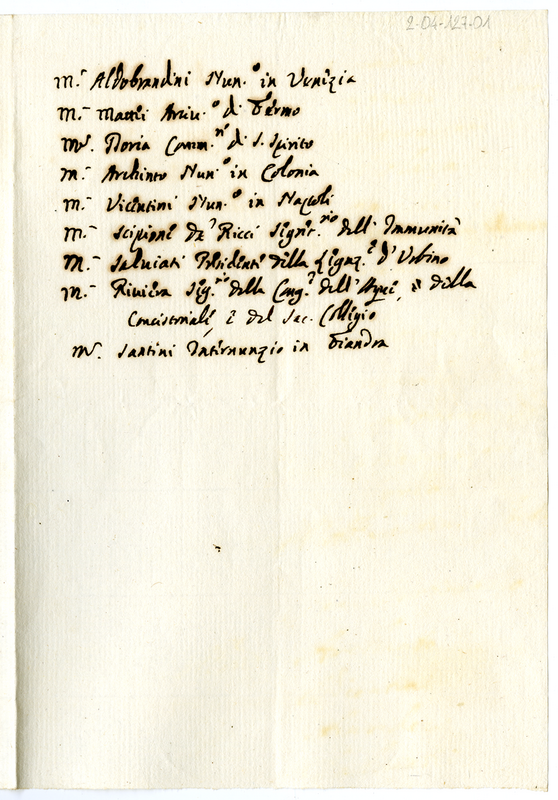 2-04-127-01
M.r Aldobrandini Nun.o in Venezia
M.r Mattei Arciv.o di Fermo
M.r Doria Comm.re di S. Spirito
M.r Archinto Nun.o in Colonia
M.r Vicentini Nun.o in Napoli
M.r Scipione de' Ricci Segret.rio dell' Immunità
M.r Salviati Presidente della Legaz.e d' Urbino
M.r Riviera Seg.rio della Cong.e dell' Acque, e della
Concistoriale, e del Sac. Collegio
M.r Santini Internunzio in Fiandra